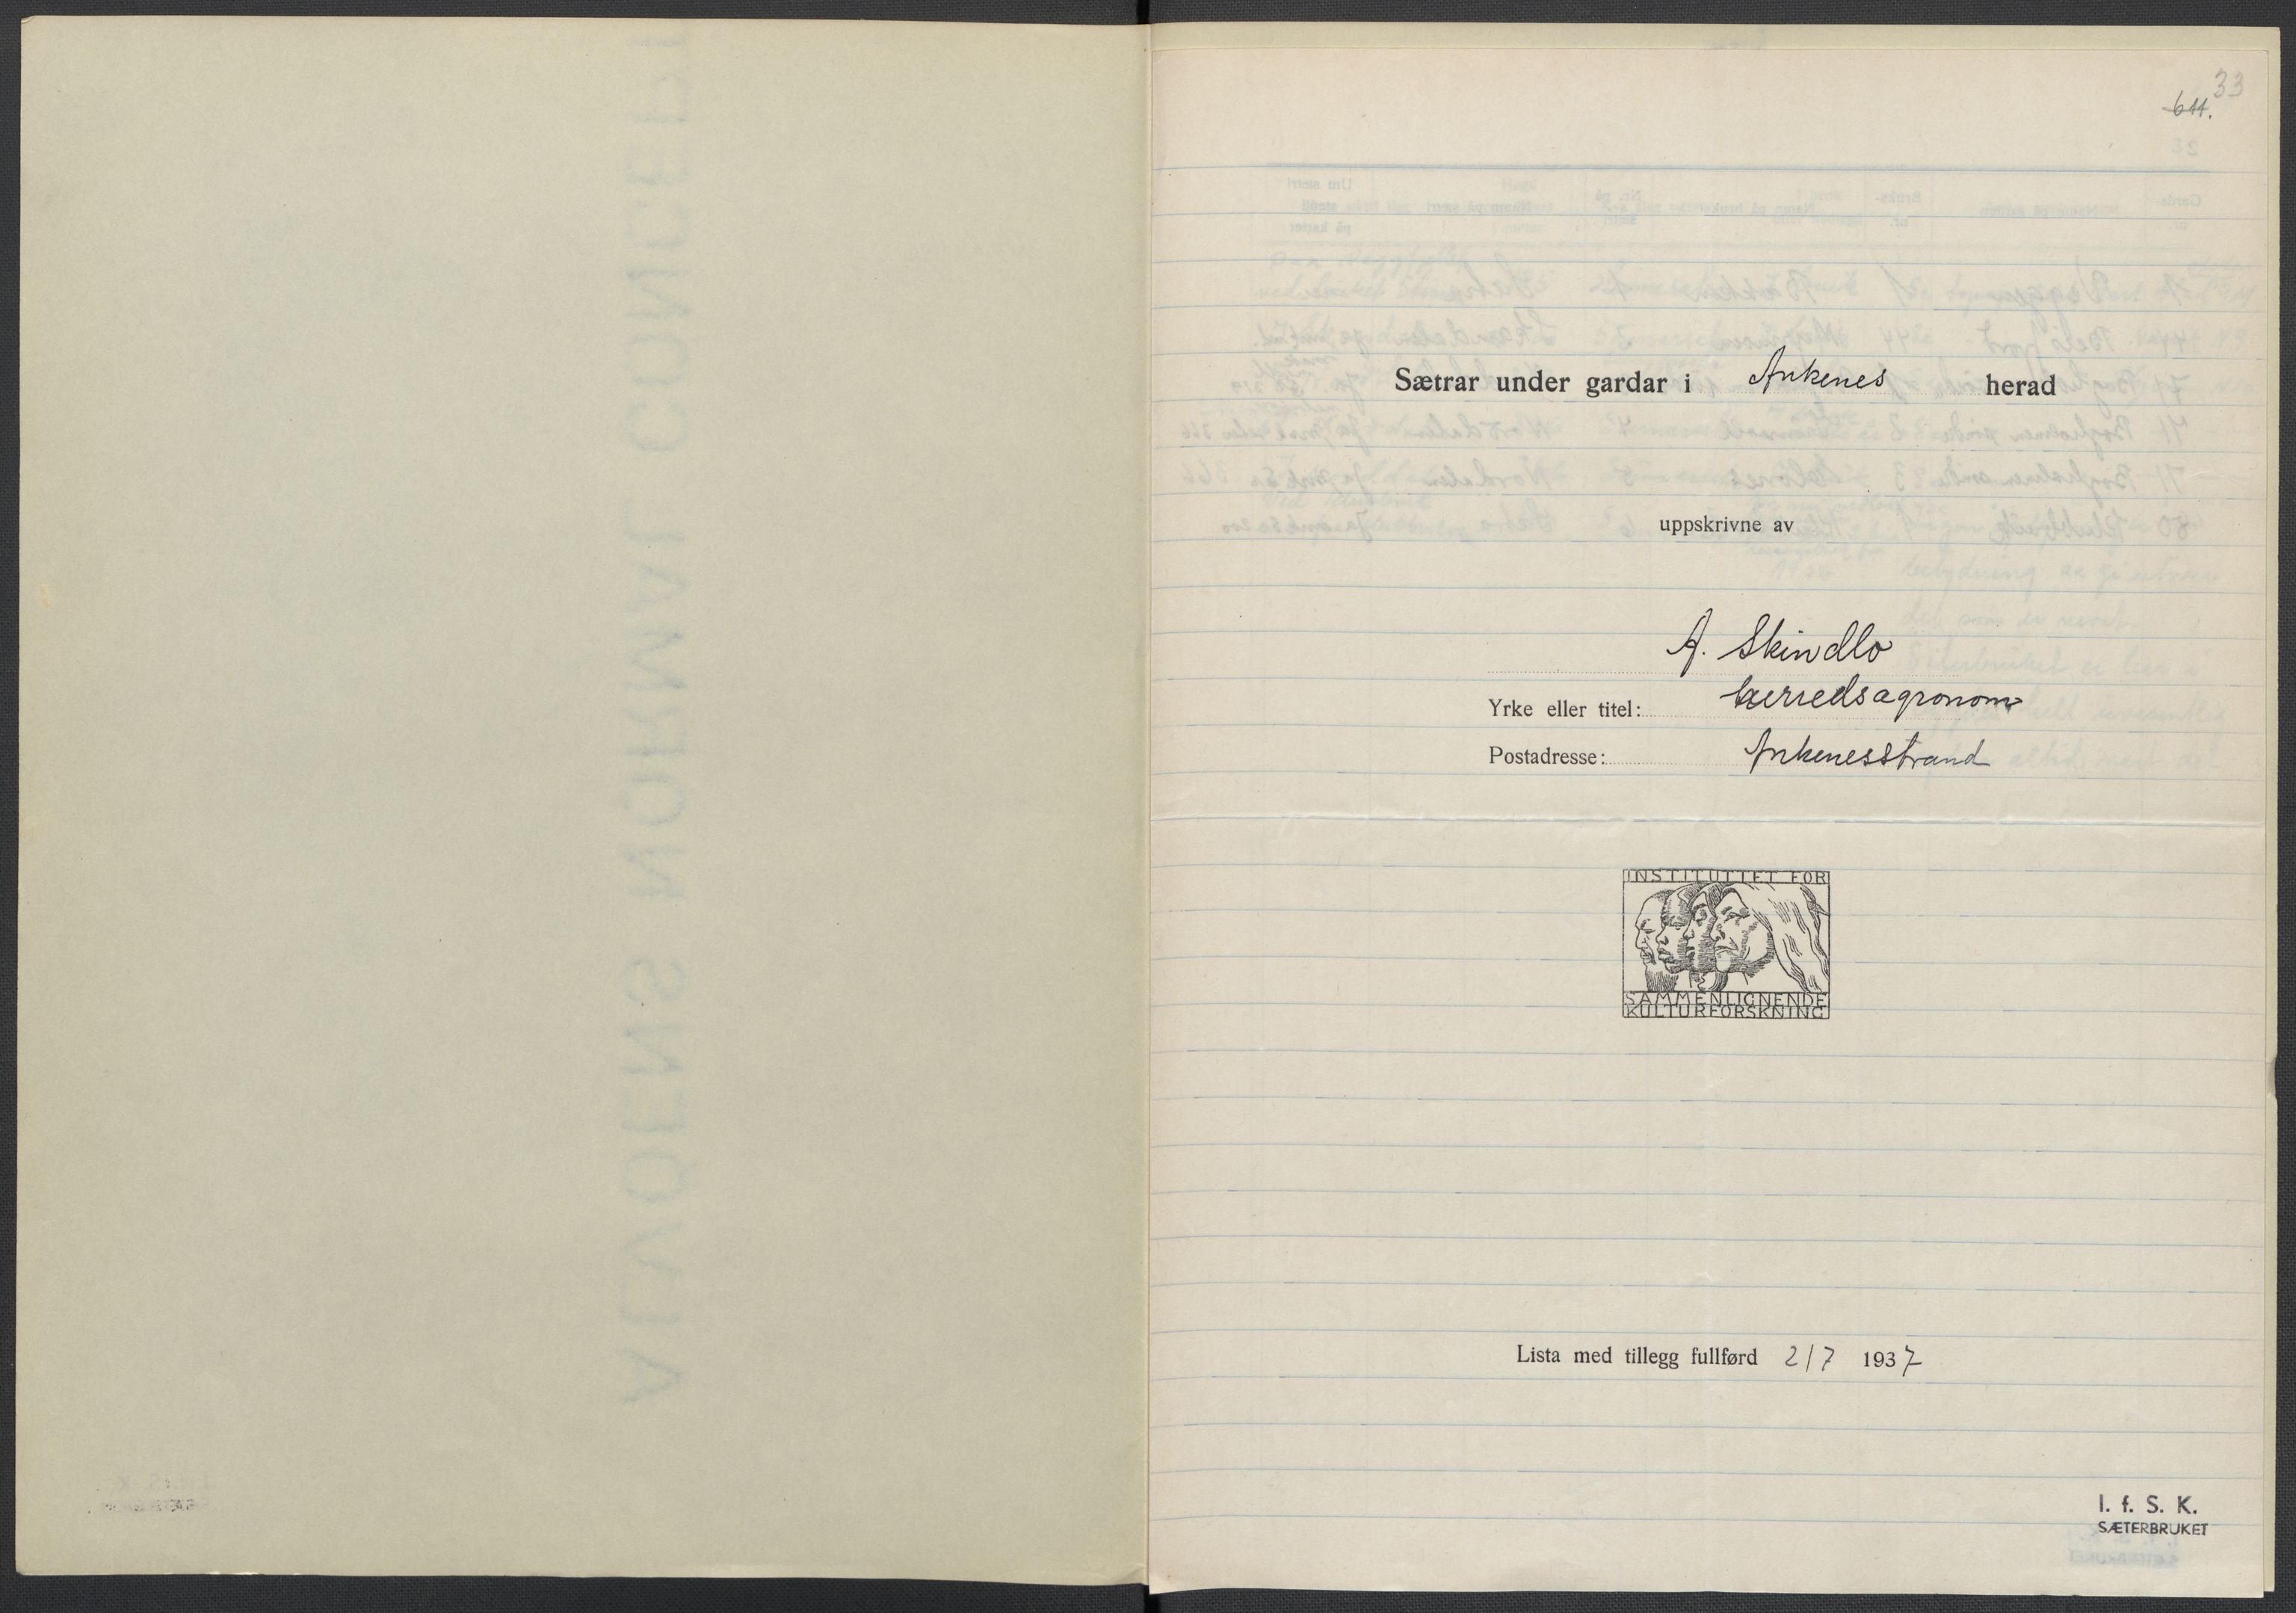 33
644.
Sætrar under gardar i Ankenes herad
uppskrivne av
A. Skindlo
Yrke eller titel: herredsagronom
Postadresse: Ankenesstrand
INSTITUTTET FOR
SAMMENLIGNENDE
KULTURFORSKNING
Lista med tillegg fullførd 2/7 1937
I. f. S. K.
SÆTERBRUKET
ALVØENS NORMAL CONCEPT